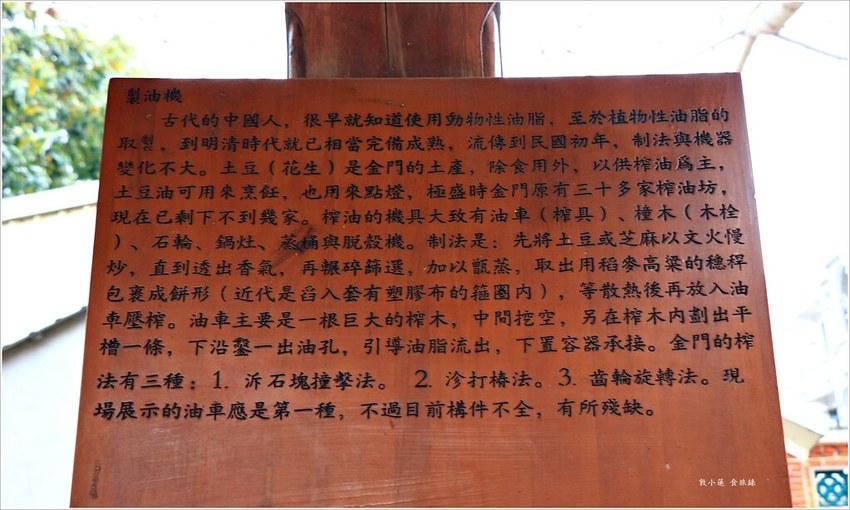 製油機
古代的中國人，很早就知道使用動物性油脂，至於植物性油脂的
取製，到明清時代就已相當完備成熟，流傳到民國初年，制法與機器
變化不大。土豆（花生）是金門的土產，除食用外，以供榨油為主，
土豆油可用來烹飪，也用來點燈，極盛時金門原有三十多家榨油坊，
現在已剩下不到幾家。榨油的機具大致有油車（榨具）、橦木（木栓
）、石輪、鍋灶、蒸桶與脫殼機。制法是：先將土豆或芝麻以文火慢
炒，直到透出香氣，再輾碎篩選，加以甑蒸，取出用稻麥高粱的穗稈
包裹成餅形（近代是舀入套有塑膠布的箍圈內），等散熱後再放入油
車壓榨。油車主要是一根巨大的榨木，中間挖空，另在榨木內劃出平
槽一條，下沿鑿一出油孔，引導油脂流出，下置容器承接。金門的榨
法有三種：1. 泝石塊撞擊法。 2. 沴打樁法。3. 齒輪旋轉法。現
場展示的油車應是第一種，不過目前構件不全，有所殘缺。
敦小蓮 食旅錄